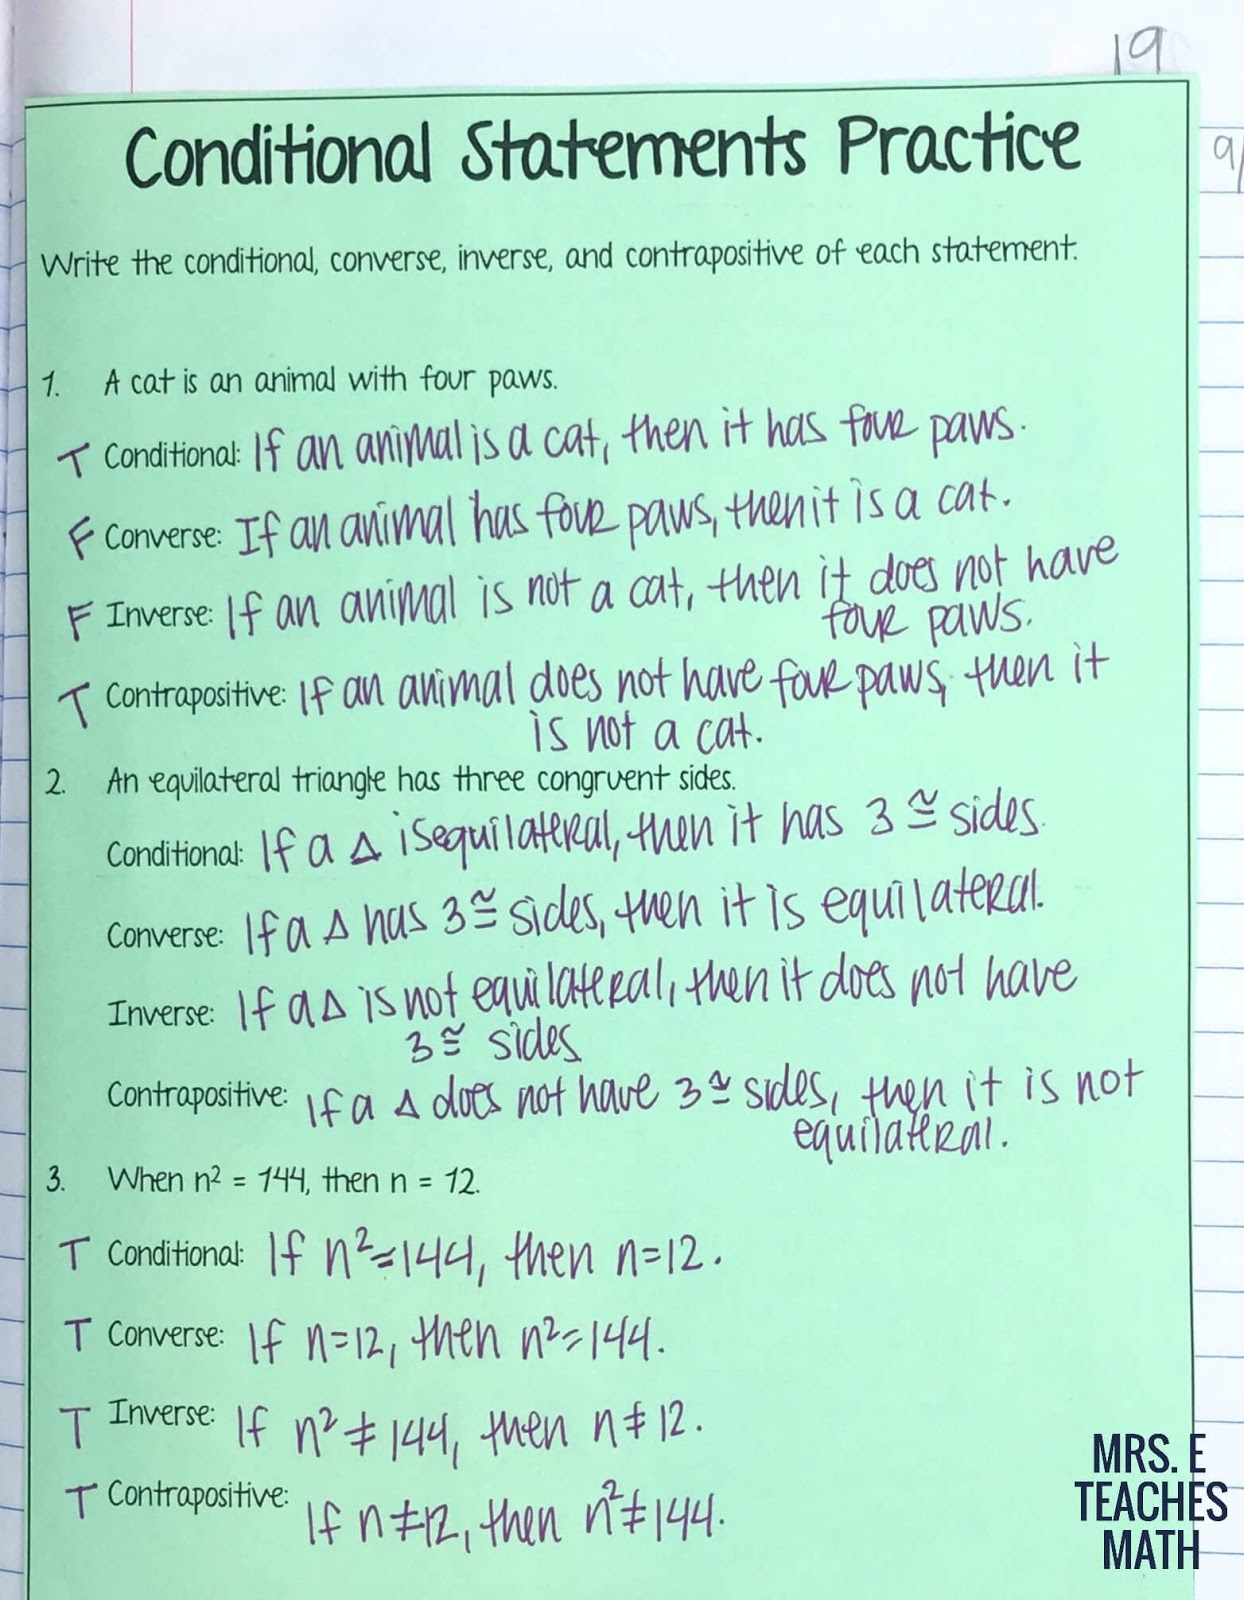 19
9/
Conditional Statements Practice
Write the conditional, converse, inverse, and contrapositive of each statement.
1. A cat is an animal with four paws.
T Conditional: If an animal is a cat, then it has four paws.
F Converse: If an animal has four paws, then it is a cat.
F Inverse: If an animal is not a cat, then it does not have
four paws.
T Contrapositive: If an animal does not have four paws, then it
is not a cat.
2. An equilateral triangle has three congruent sides.
Conditional: If a △ is equilateral, then it has 3 ≅ sides.
Converse: If a △ has 3 ≅ sides, then it is equilateral.
Inverse: If a △ is not equilateral, then it does not have
3 ≅ sides
Contrapositive: If a △ does not have 3 ≅ sides, then it is not
equilateral.
3. When n² = 144, then n = 12.
T Conditional: If n²=144, then n=12.
T Converse: If n=12, then n²=144.
T Inverse: If n² ≠ 144, then n ≠ 12.
T Contrapositive: If n ≠ 12, then n² ≠ 144.
MRS. E
TEACHES
MATH